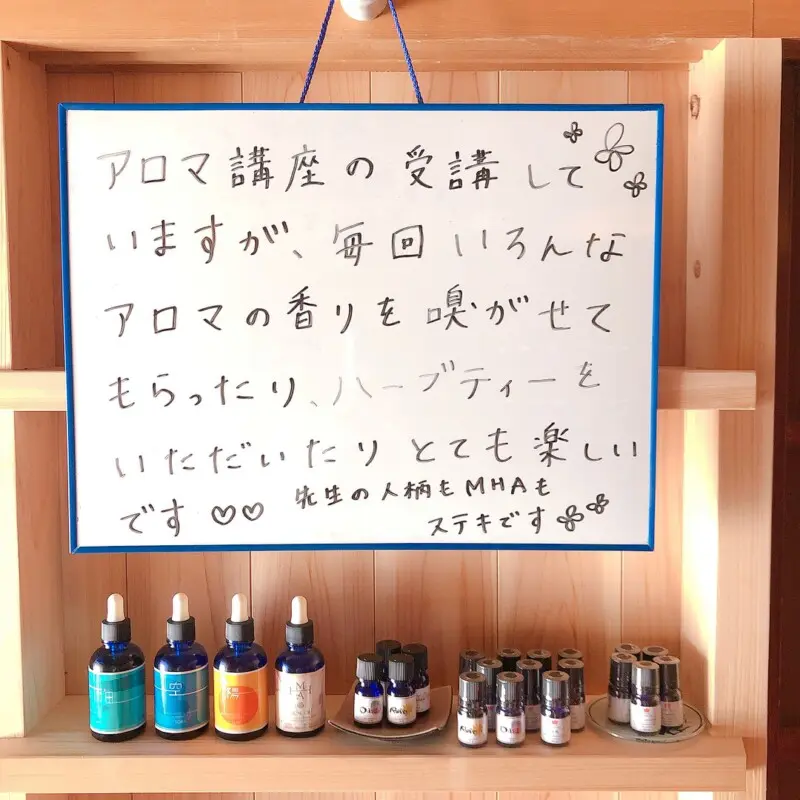 アロマ講座の受講して
いますが、毎回いろんな
アロマの香りを嗅がせて
もらったり、ハーブティーを
いただいたりとても楽しい
です♡♡
先生の人柄もMHAも
ステキです
空
陽
MHA